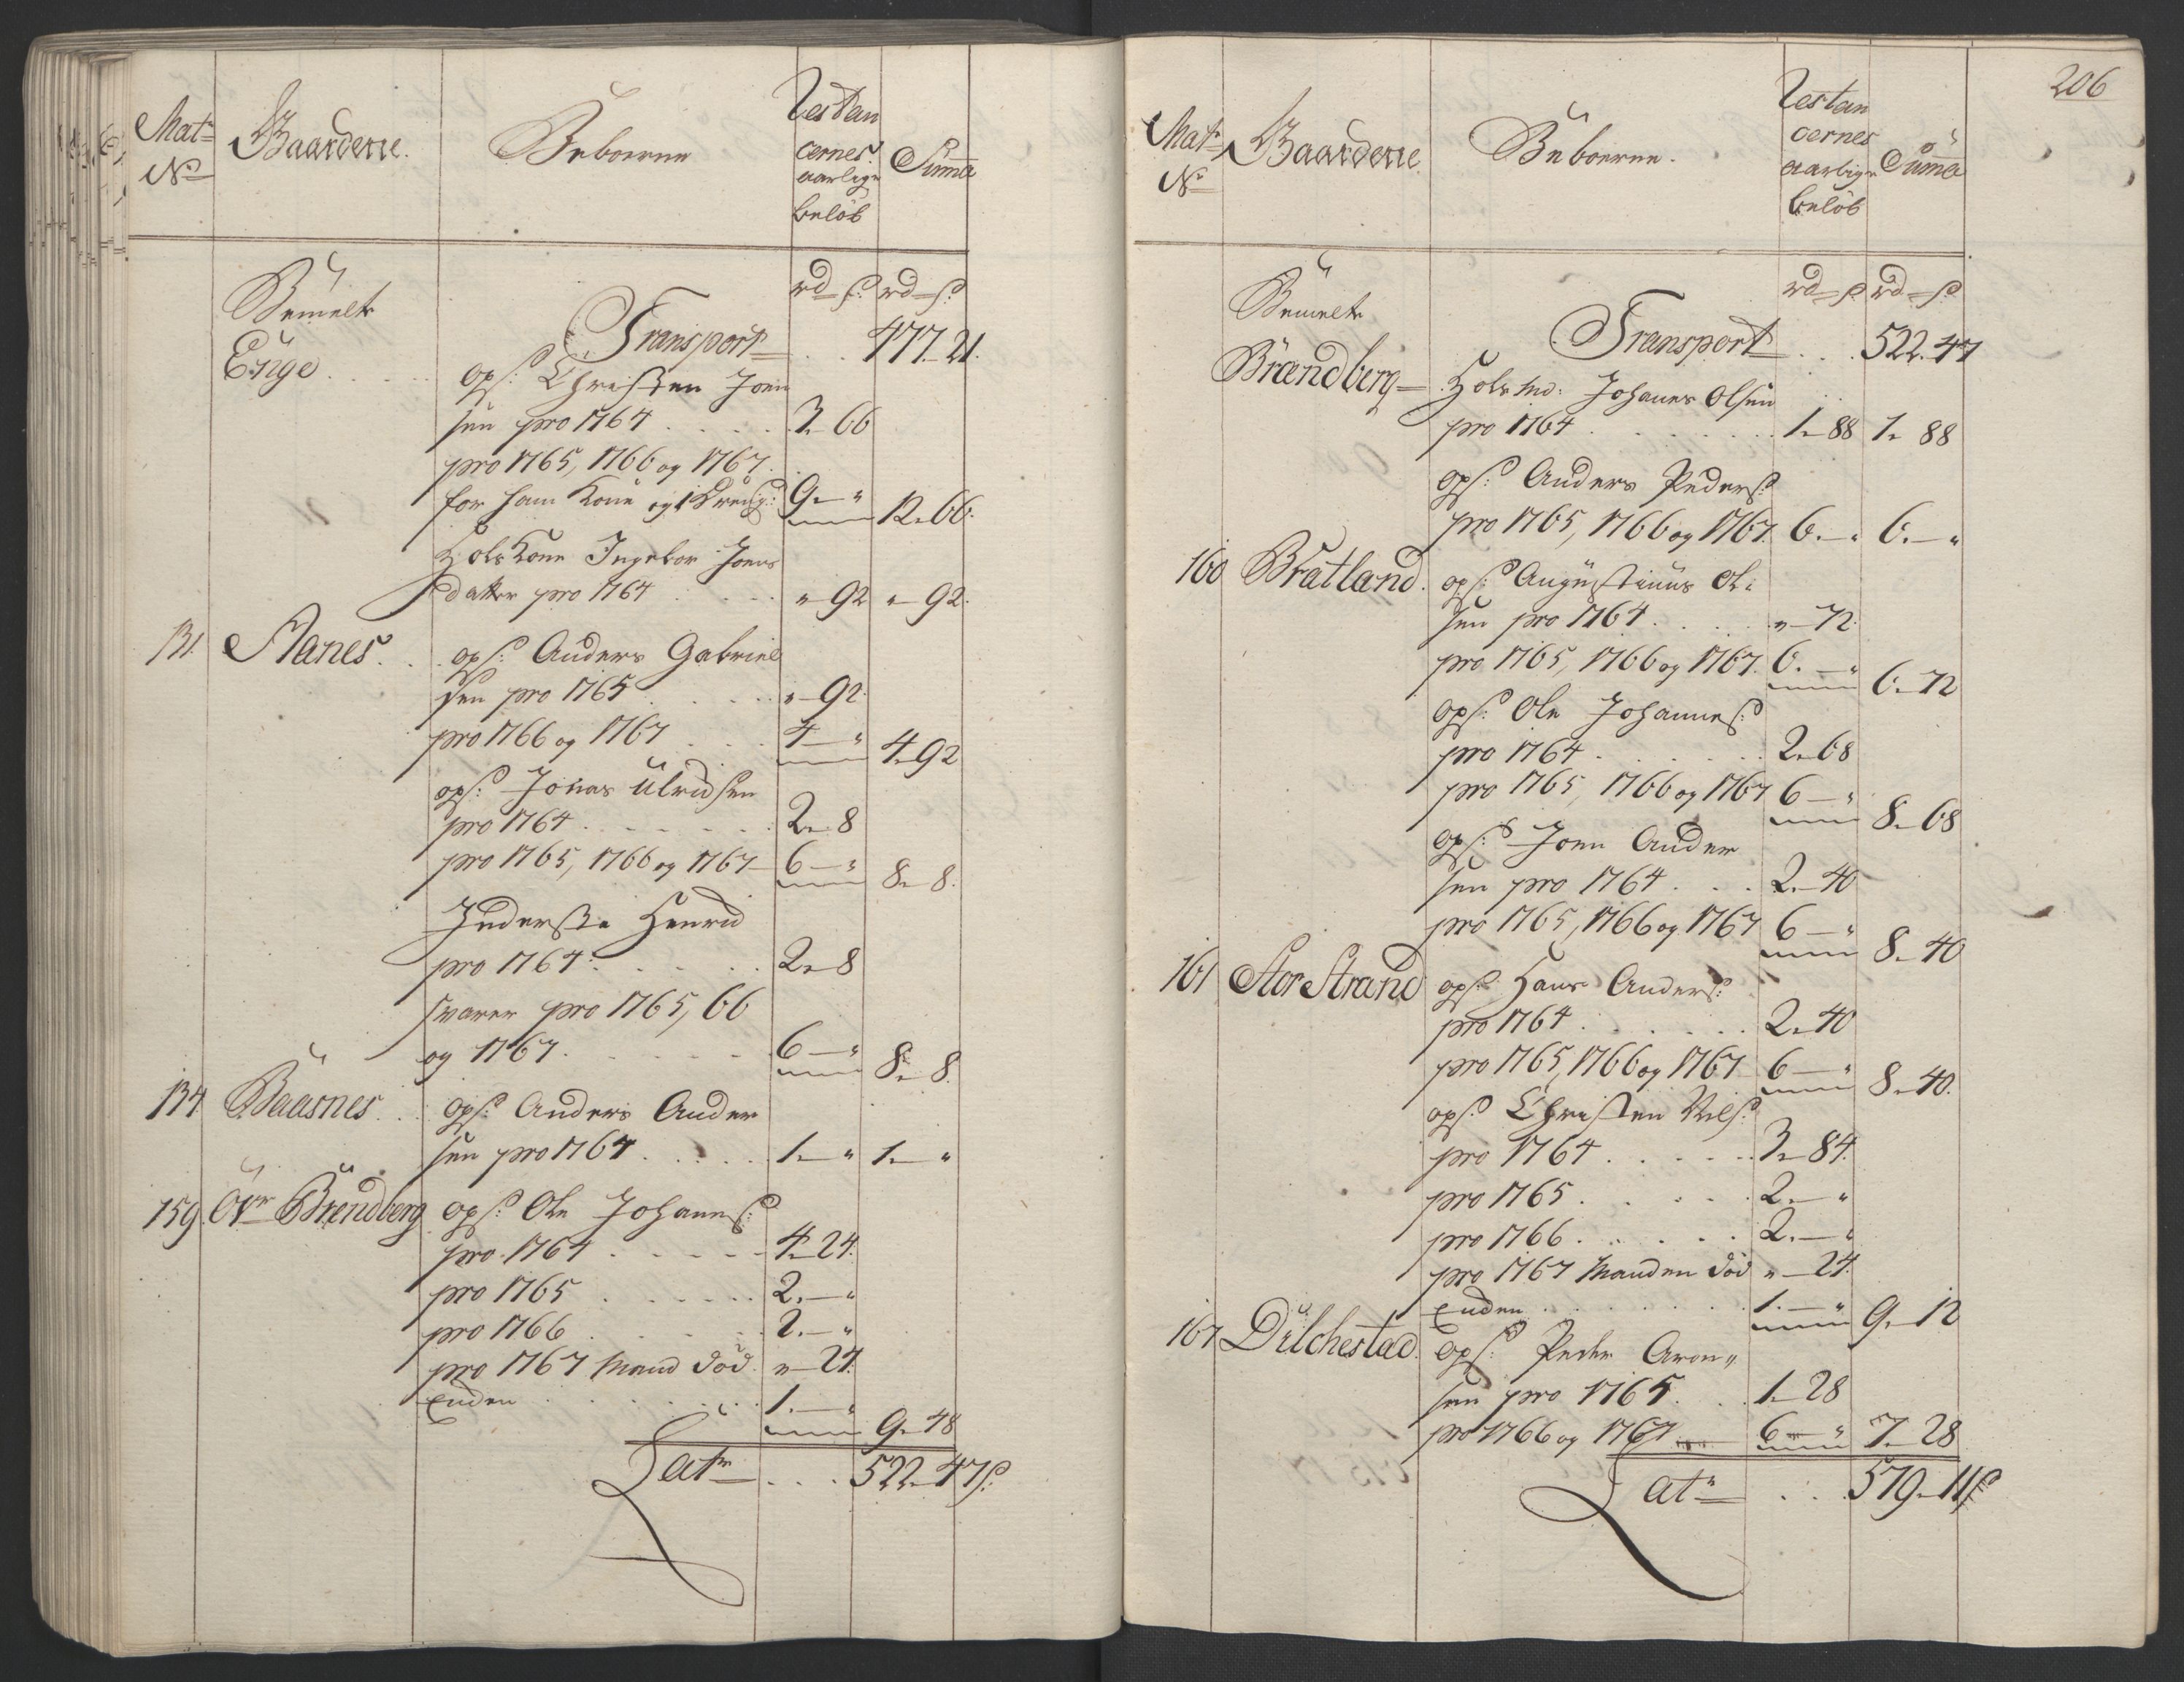 Mat:
No
Gaardene.
Beboerne
Restan
cernes
aarlige
beløb
Summa
rd ß rd ß
Bemelte
Enge
Transport . . 477. 21.
ops: Christen Joen
sen pro 1764 . . . . 3. 66
pro 1765, 1766 og 1767.
for ham Kone og 1 Dreng: 9. " 12. 66.
Kone Ingebor Joens
datter pro 1764 . . . . " 92 " 92.
131. Aanes. . . ops: Anders Gabriel
sen pro 1765 . . . " 92.
pro 1766 og 1767 . . . 4 " 4. 92
ops: Jonas Ulrichsen
pro 1764 . . . . . . 2. 8
pro 1765, 1766 og 1767 6 " 8. 8.
Inderste Henrich
pro 1764: . . . . . 2. 8
svarer pro 1765, 66
og 1767. . . . . . 6 " 8. 8.
134 Baasnes . . ops: Anders Ander
sen pro 1764 . . . . . 1. " 1. "
159. Øvr Brendberg ops: Ole Johans:
pro 1764 . . . . . 4. 24.
pro 1765 . . . . . . 2. "
pro 1766 . . . . . . 2. "
pro 1767 Mand død. " 24.
Enken . . . . . . . 1. " 9. 48
Latr . . . 522. 47 ß.
206
Mat:
No
Gaardene
Beboerne.
Restan
cernes
aarlige
beløb
Summa
rd ß rd ß
Bemelte
Brændberg
Transport . . . 522. 47
md: Johanes Olsen
pro 1764 . . . . . . . 1. 88 1. 88
ops: Anders Peders:
pro 1765, 1766 og 1767. 6. " 6. "
160 Bratland. ops: Augustinus Ol:
sen pro 1764 . . . . " 72.
pro 1765, 1766 og 1767. 6. " 6. 72
ops: Ole Johannes:
pro 1764 . . . . . . . 2. 68
pro 1765, 1766 og 1767 6 " 8. 68
ops: Joen Ander
sen pro 1764 . . . 2. 40
pro 1765, 1766 og 1767 6 " 8. 40
161 Stor Strand ops: Hans Anders:
pro 1764 . . . . . . . 2. 40
pro 1765, 1766 og 1767 6 " 8. 40.
ops: Christen Nils:
pro 1764 . . . . . . 3. 84.
pro 1765 . . . . . . 2. "
pro 1766 . . . . . . 2. "
pro 1767 Manden død " 24.
Enken . . . . . . . 1. " 9. 12
167 Dilchestad. ops: Peder Aron"
sen pro 1765 . . . 1. 28
pro 1766 og 1767 6 " 7. 28
Latr . . . 579. 11 ß